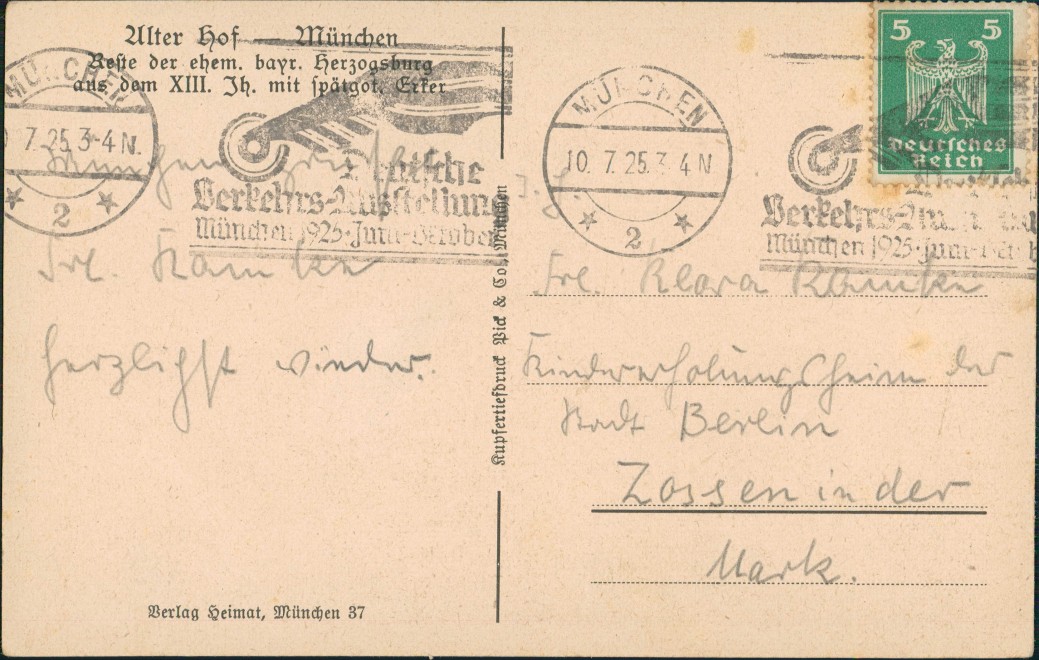 Alter Hof — München
Reste der ehem. bayr. Herzogsburg
aus dem XIII. Jh. mit spätgot. Erker
MÜNCHEN
7.25.3-4N.
2
Deutsche
Verkehrs-Ausstellung
München 1925·Juni-Oktober
München grüßt
Frl. Kamcke
herzlichst wieder.
Verlag Heimat, München 37
Kupfertiefdruck Pick & Co., München
MÜNCHEN
10. 7.25.3-4N
2
Verkehrs-
München 1925·Juni-
5 5
Deutsches
Reich
Frl. Klara Kamcke
Kindererholungsheim der
Stadt Berlin
Zossen in der
Mark.